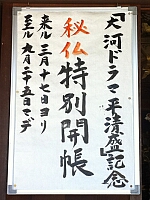 「大河ドラマ平清盛」記念
秘仏特別開帳
来ル三月十七日ヨリ
至ル九月二十五日マデ